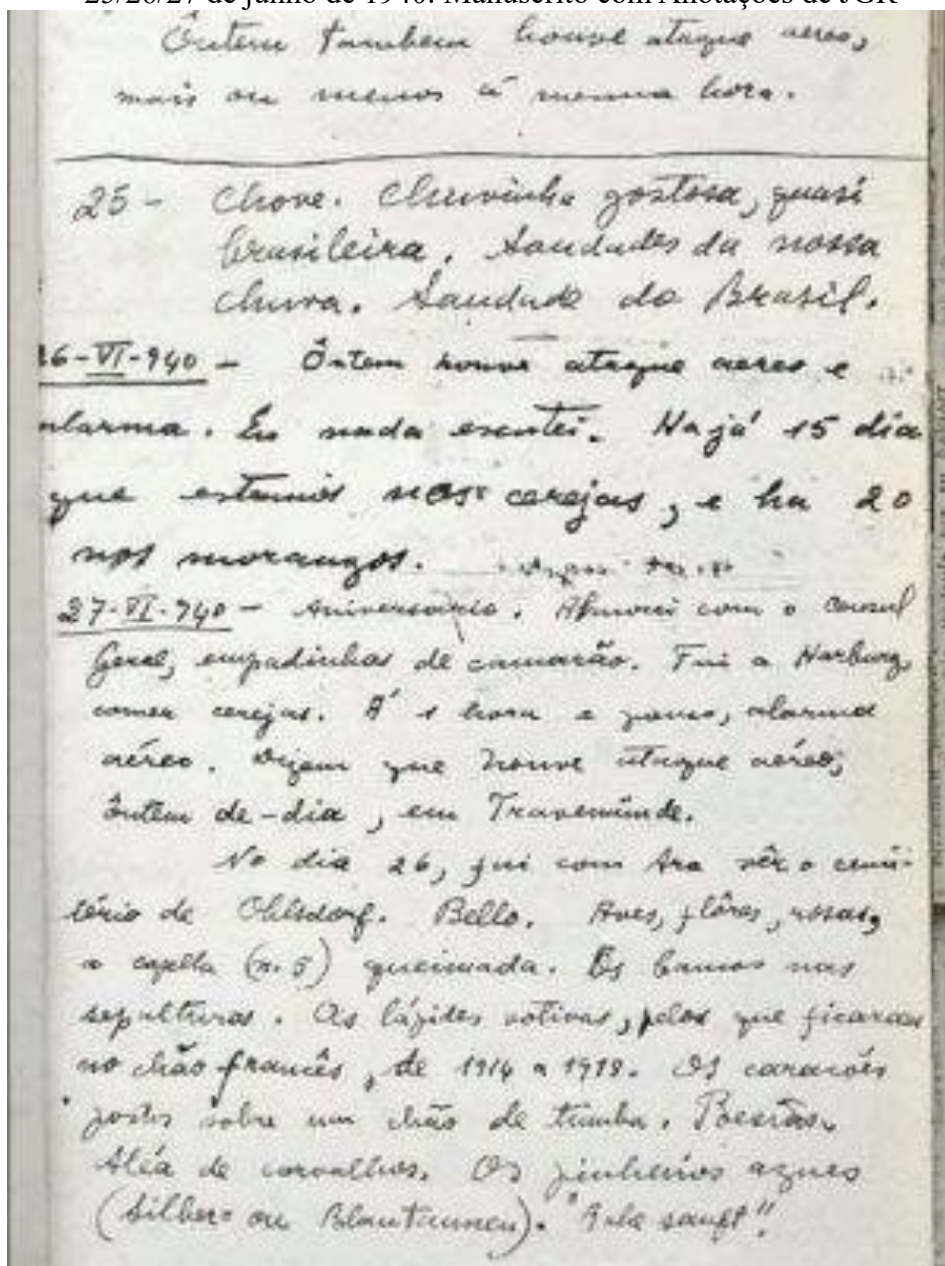 25/26/27 de junho de 1940. Manuscrito com Anotações de JGR
Ôntem tambem houve ataque aereo,
mais ou menos á mesma hora.
25 - Chove. Chuvinha gostosa, quasi
brasileira. Saudades da nossa
chuva. Saudade do Brasil.
26-VI-940 - Ôntem houve ataque aereo e
alarma. Eu nada escutei. Ha já 15 dia
que estamos nas cerejas, e ha 20
nos morangos.
27-VI-940 - Aniversario. Almocei com o Consul
Geral, empadinhas de camarão. Fui a Harburg,
comer cerejas. Á 1 hora e pouco, alarma
aéreo. Dizem que houve ataque aéreo,
ôntem de-dia, em Travemünde.
No dia 26, fui com Ara vêr o cemi-
tério de Ohlsdorf. Bello. Aves, flôres, rosas,
a capella (n. 5) queimada. Os bancos nas
sepulturas. As lápides votivas, pelos que ficaram
no chão francês, de 1914 a 1918. Os caracóes
sobre um chão de tumba. Poesias.
Aléa de carvalhos. Os pinheiros azues
(Silber- ou Blautannen). "Ruhe sanft"!